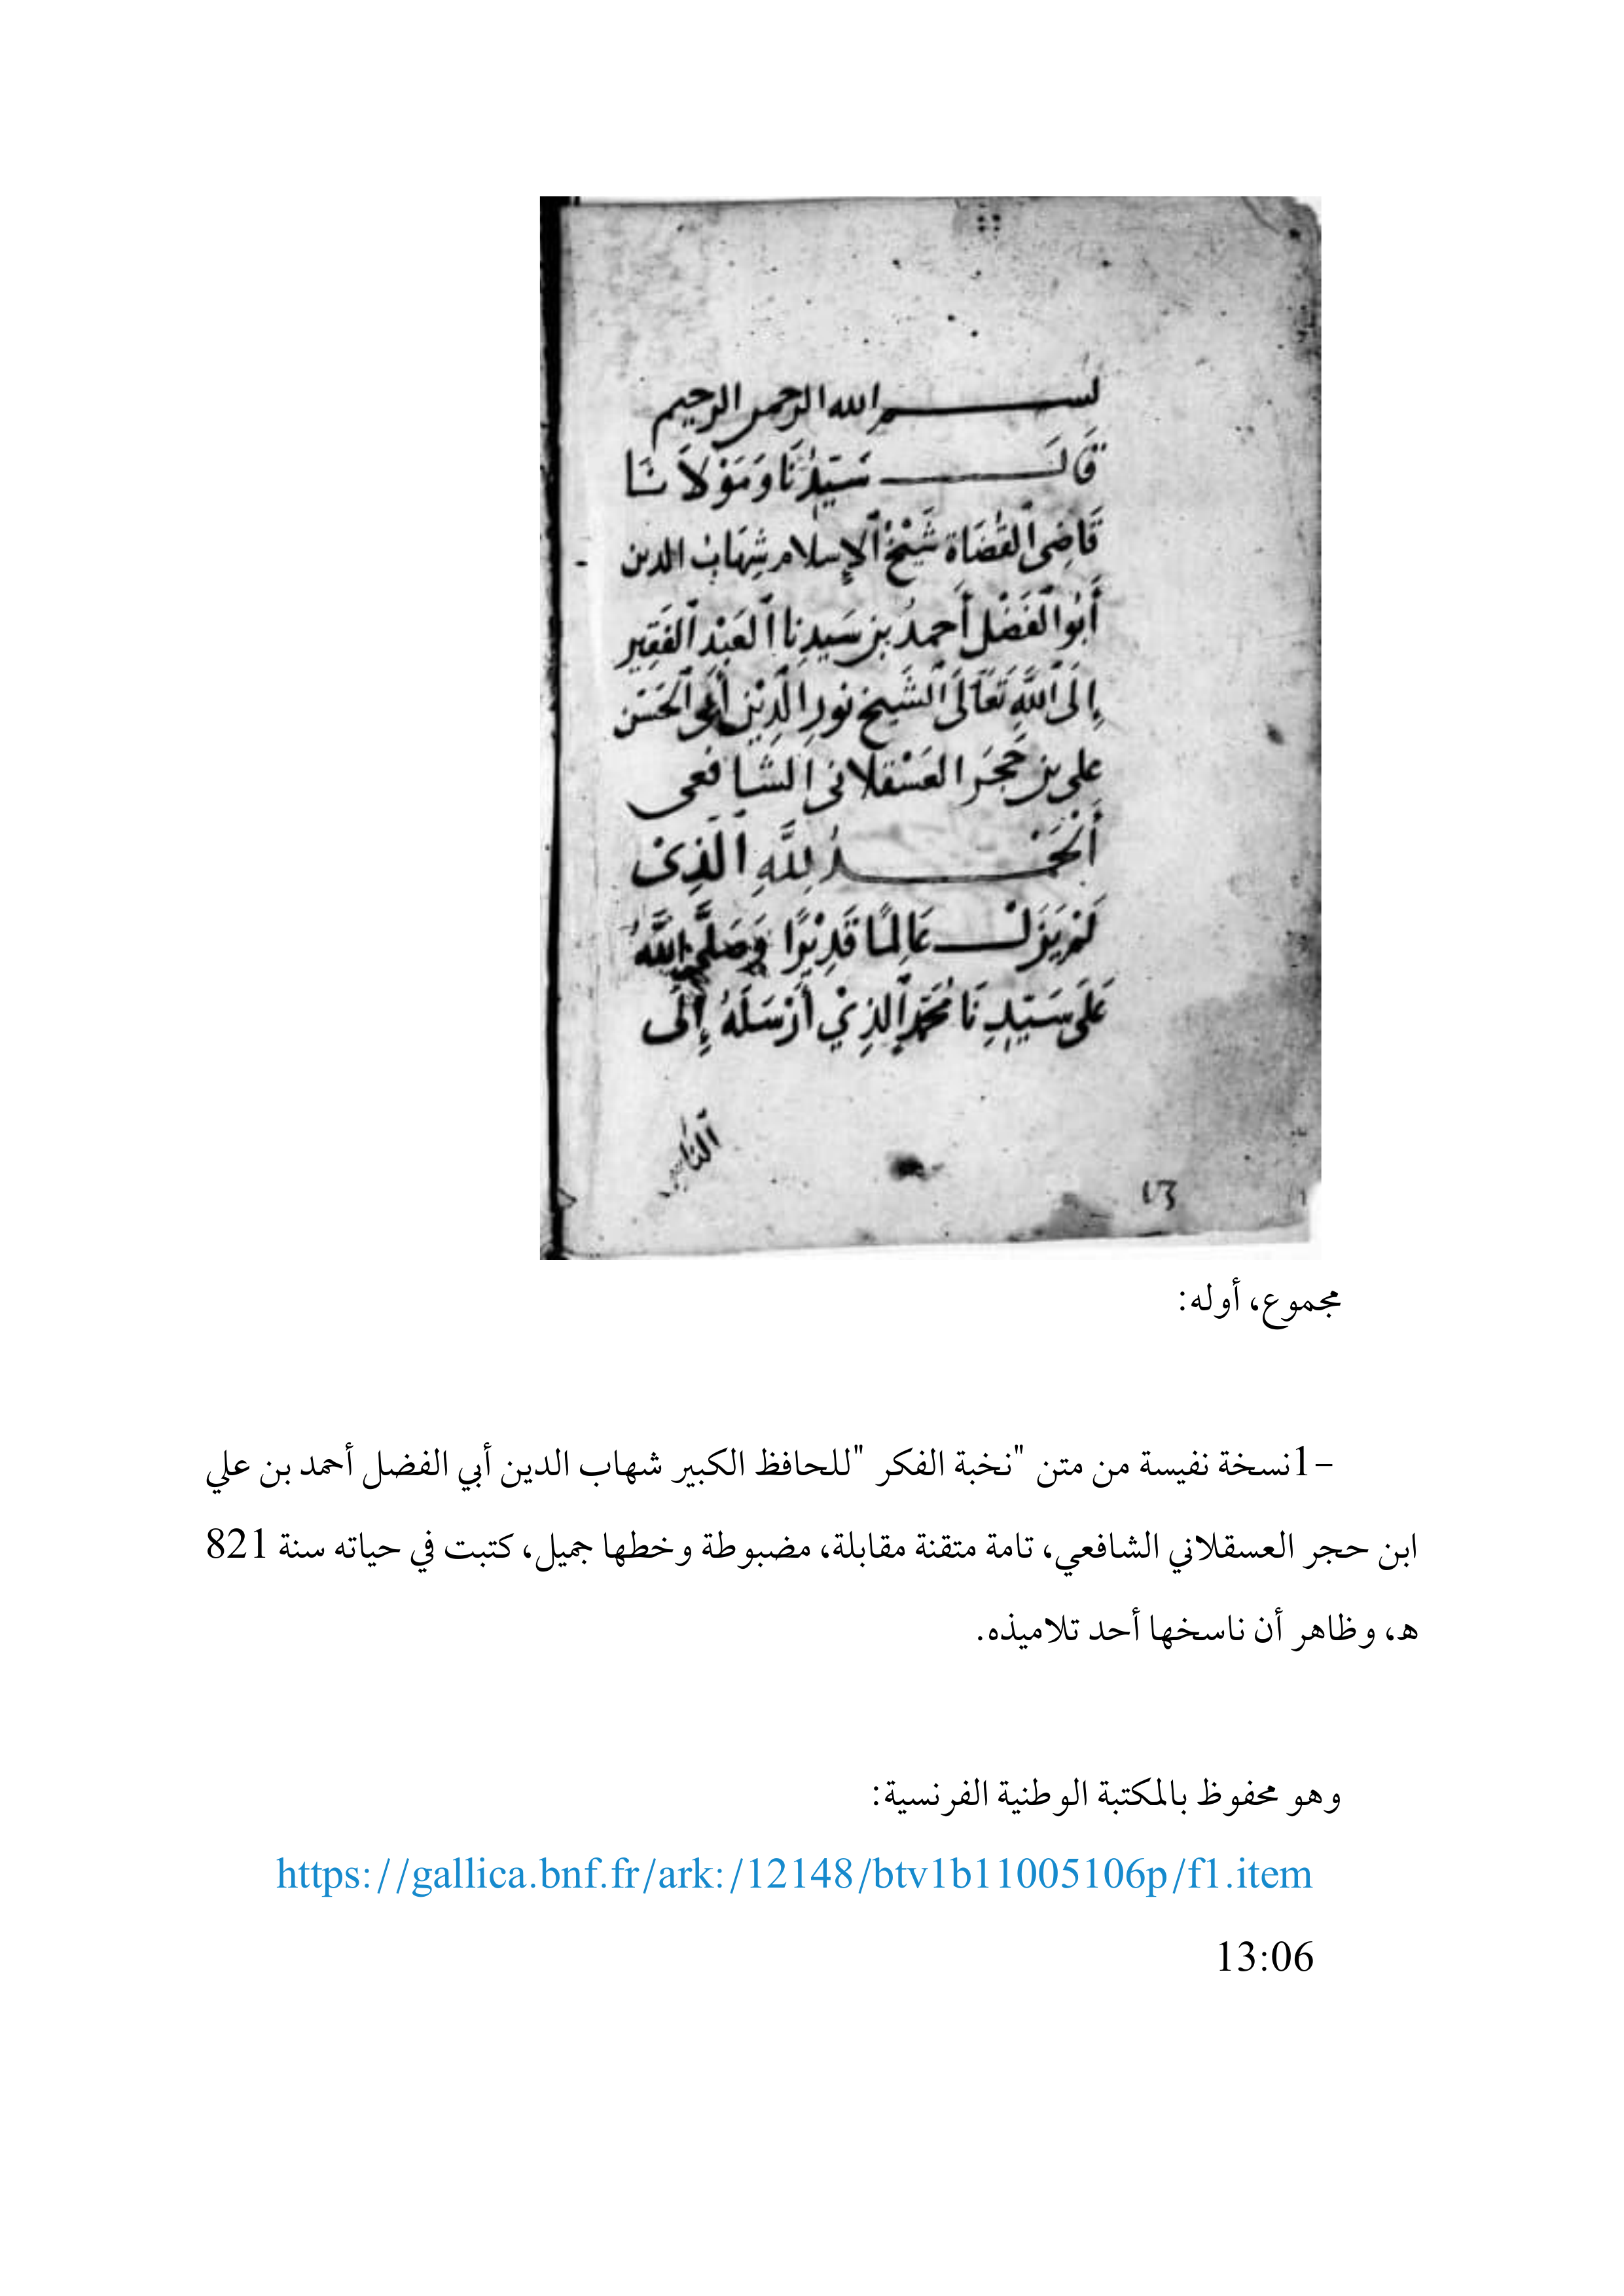 بسم الله الرحمن الرحيم
قَالَ سَيِّدُنَا وَمَوْلَانَا
قَاضِي ٱلقُضَاة شَيْخُ ٱلإِسلام شِهَابُ الدين
أَبُو الفَضْل أَحمدُ بن سَيدِنا ٱلعَبْد ٱلفَقِير
إِلَى ٱللَّهِ تَعَالَى ٱلشَيخ نورِ الَّدِيْن أَبي ٱلحَسَن
على بن حَجَر العَسْقلانى الشَافعى
أَلْحَمْدُ لِلَّهِ الَّذِىْ
لَمْ يَزَلْ عَالِمًا قَدِيْرًا وَصَلَّى اللَّهُ
عَلَى سَيِّدِنَا مُحَمَّدٍ ٱلَّذِيْ أَرْسَلَهُ إِلَى
ٱلنَّاسِ
مجموع، أوله:
1- نسخة نفيسة من متن "نخبة الفكر" للحافظ الكبير شهاب الدين أبي الفضل أحمد بن علي
ابن حجر العسقلاني الشافعي، تامة متقنة مقابلة، مضبوطة وخطها جميل، كتبت في حياته سنة 821
ه، وظاهر أن ناسخها أحد تلاميذه.
وهو محفوظ بالمكتبة الوطنية الفرنسية:
https://gallica.bnf.fr/ark:/12148/btv1b11005106p/f1.item
13:06